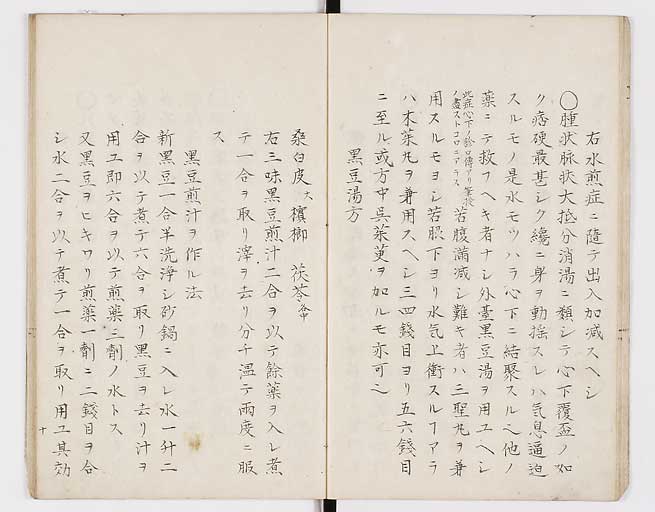 右水煎症ニ隨テ出入加減スヘシ
〇腫状脈状大抵分消湯ニ類シテ心下覆盃ノ如
ク痞硬最甚シク纔ニ身ヲ動揺スレハ気息逼迫
スルモノ是水モツハラ心下ニ結聚スル也他ノ
薬ニテ救フヘキ者ナシ外臺黒豆湯ヲ用ユヘシ
此症心下ノ
ノ盡ストコロニアラス
若腹満減シ難キ者ハ三聖丸ヲ兼
用スルモヨシ若臍下ヨリ水気上衝スルヿアラ
ハ木茱丸ヲ兼用スヘシ三四錢目ヨリ五六錢目
ニ至ル或方中呉茱萸ヲ加ルモ亦可也
黒豆湯方
桑白皮大 檳榔 茯苓各中
右三味黒豆煎汁二合ヲ以テ餘薬ヲ入レ煮
テ一合ヲ取リ滓ヲ去リ分チ温テ兩度ニ服
ス
黒豆煎汁ヲ作ル法
新黒豆一合半洗浄シ砂鍋ニ入レ水一升二
合ヲ以テ煮テ六合ヲ取リ黒豆ヲ去リ汁ヲ
用ユ即六合ヲ以テ煎薬三劑ノ水トス
又黒豆ヲヒキワリ煎薬一劑ニ二錢目ヲ合
シ水二合ヲ以テ煮テ一合ヲ取リ用ユ其効
十